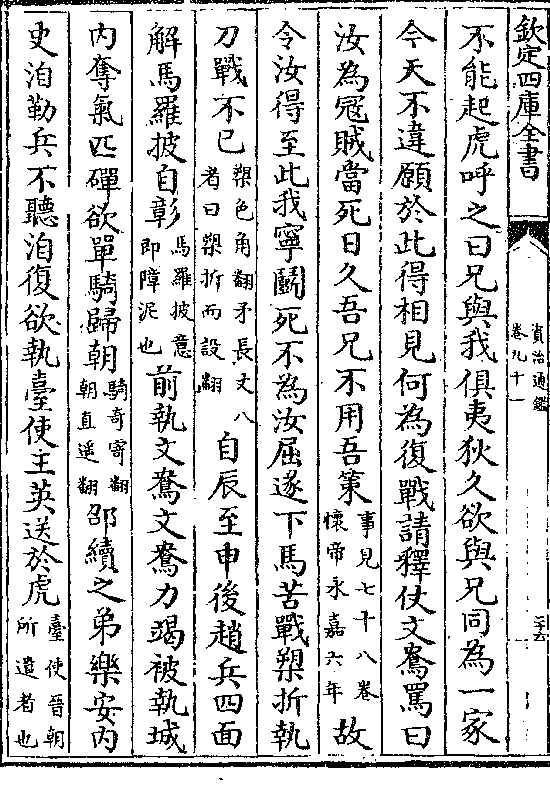 欽定四庫全書
資治通鑑
卷九十一
二十六
不能起虎呼之曰兄與我俱夷狄久欲與兄同為一家
今天不違願於此得相見何為復戰請釋仗文鴦罵曰
汝為冦賊當死日久吾兄不用吾策事見七十八卷懷帝永嘉六年故
令汝得至此我寧鬬死不為汝屈遂下馬苦戰槊折執
刀戰不已槊色角翻矛長丈八者曰槊折而設翻自辰至申後趙兵四面
解馬羅披自彰馬羅披意即障泥也前執文鴦文鴦力竭被執城
内奪氣匹磾欲單騎歸朝騎奇寄翻朝直遥翻邵續之弟樂安内
史洎勒兵不聽洎復欲執臺使王英送於虎臺使晉朝所遣者也